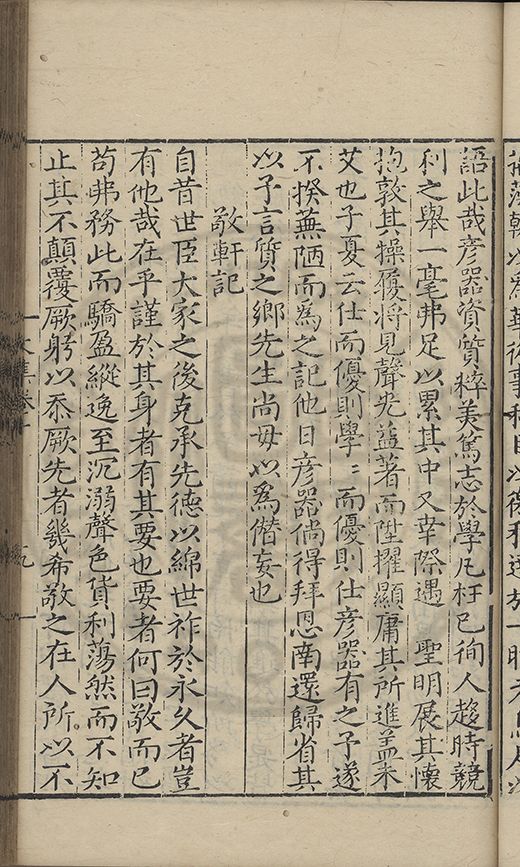 語此哉彦器資質粹美篤志於學凡枉己徇人趨時競
利之舉一毫弗足以累其中又幸際遇　聖明展其懷
抱敦其操履將見聲光益著而陞擢顯庸其所進盖未
艾也子夏云仕而優則學〻而優則仕彦器有之予遂
不揆蕪陋而爲之記他日彦器倘得拜恩南還歸省其
以予言質之鄉先生尚毋以爲僭妄也
敬軒記
自昔世臣大家之後克承先德以綿世祚於永久者豈
有他哉在乎謹於其身者有其要也要者何曰敬而已
苟弗務此而驕盈縱逸至沉溺聲色貨利蕩然而不知
止其不顛覆厥躬以忝厥先者幾希敬之在人所以不
文集卷
九